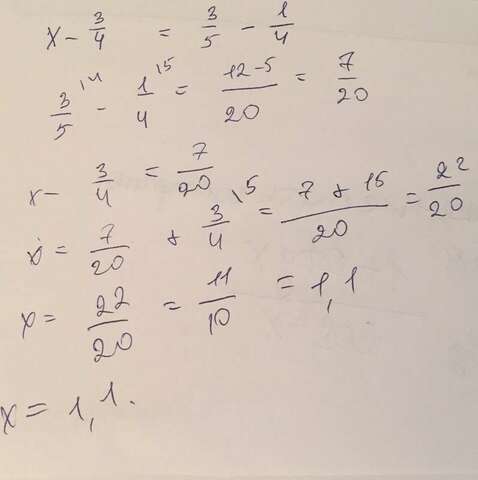 x - 3/4 = 3/5 - 1/4
3/5 \4 - 1/4 \5 = 12-5/20 = 7/20
x - 3/4 = 7/20
x = 7/20 + 3/4 \5 = 7 + 15/20 = 22/20
x = 22/20 = 11/10 = 1,1
x = 1,1.